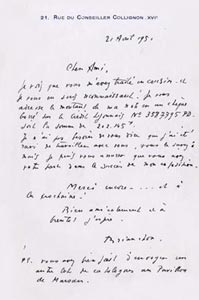 21, RUE DU CONSEILLER COLLIGNON. XVIᵉ
21 Août 195
Cher Ami,
Je vois que vous m'avez traité en cousin. et
je vous en suis reconnaissant. Je vous
adresse le montant de ma note en un chèque
barré sur le Crédit Lyonnais N° 3587795 PD.
soit la somme de
Je n'ai pas besoin de vous dire que j'ai été
ravi de travailler avec vous. vous le savez
mais je puis vous assurer que vous avez
votre part dans le succès de mon exposition.
Merci encore ... et à
la prochaine.
Bien amicalement et à
bientôt j'espère
PS. vous avez bien fait d'envoyer un
autre lot de catalogues au Pavillon
de Marsan.